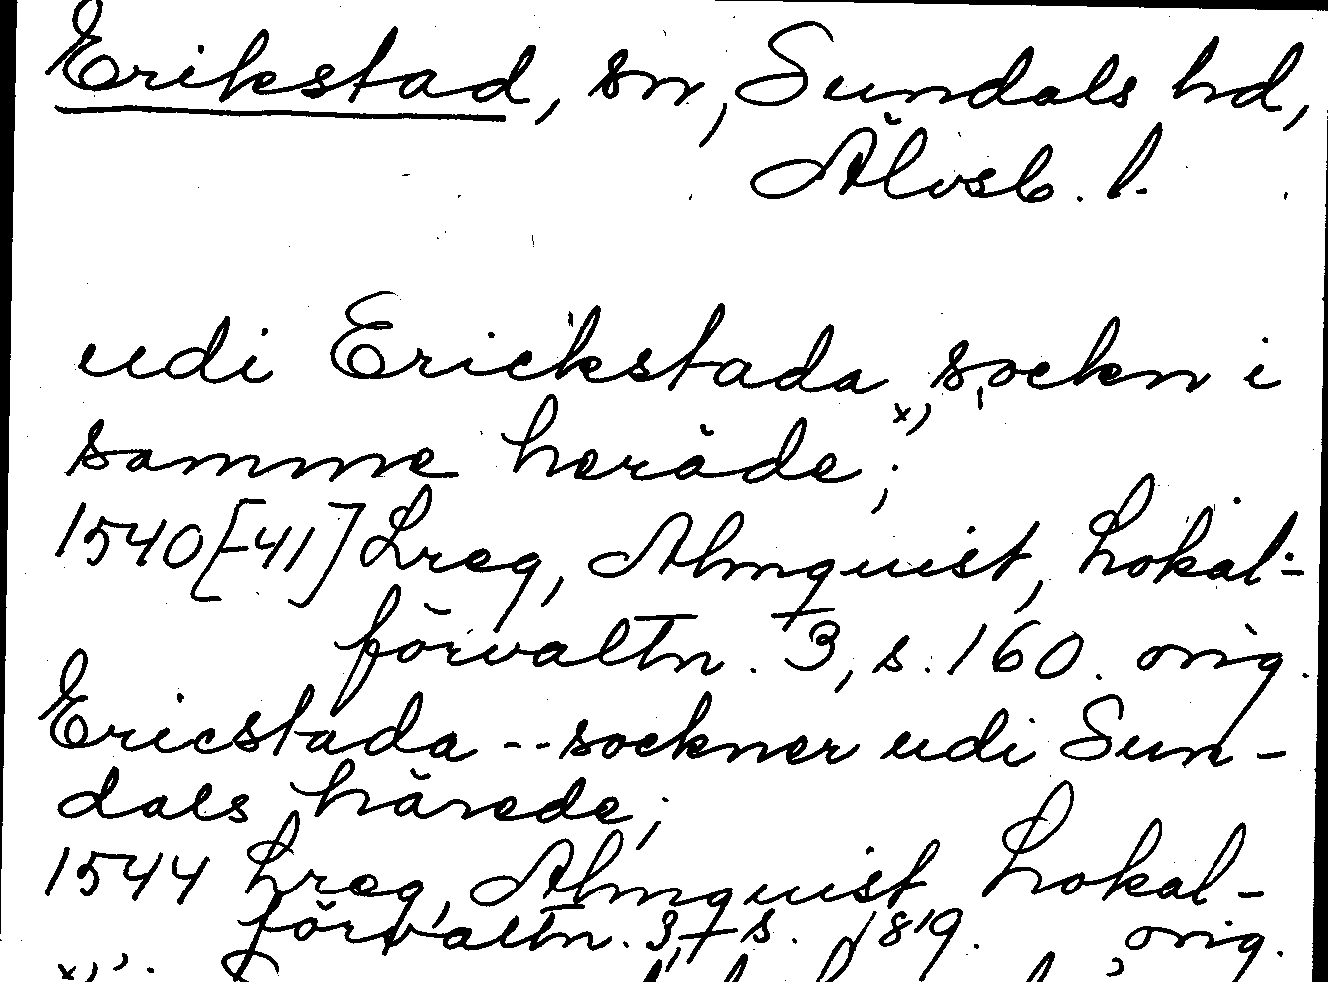 Erikstad, sn, Sundals hd,
Älvsb. l.
udi Erickstada x) sockn i
samme heräde;
1540[-41] Lreg, Almquist, Lokal-
förvaltn. 3, s. 160. orig.
Ericstada -- sockner udi Sun-
dals härede;
1544 Lreg, Almquist, Lokal-
förvaltn. 3, s. 189. orig.